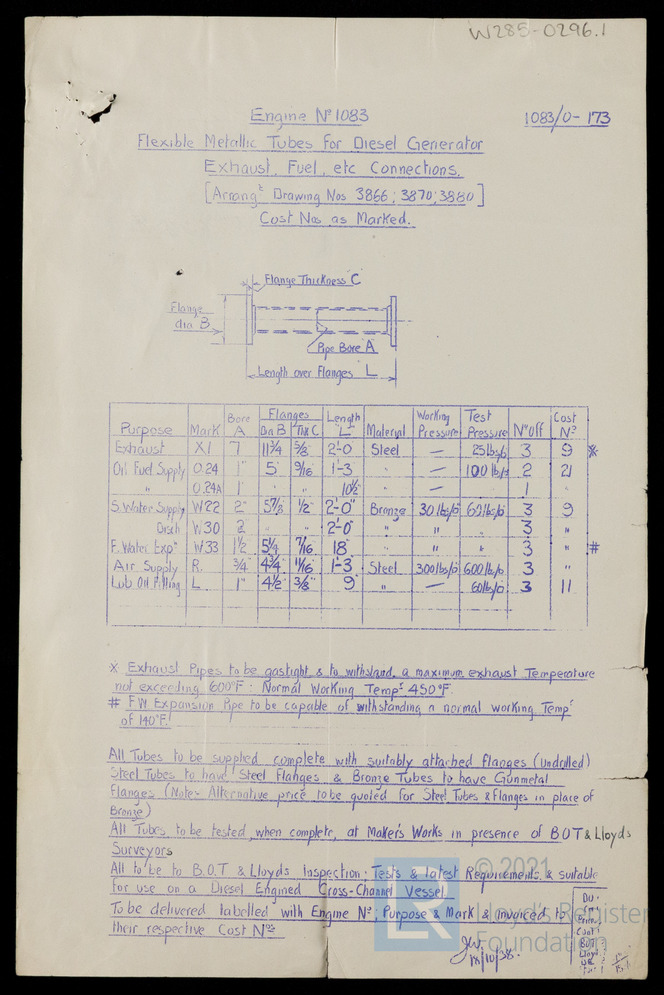 W285-0296.1
Engine Nº 1083
1083/0-173
Flexible Metallic Tubes for Diesel Generator
Exhaust, Fuel, etc Connections.
[Arrangt Drawing Nos 3866; 3870; 3880]
Cost Nos as Marked.
Flange Thickness C
Flange
dia B
Pipe Bore A
Length over Flanges L
Purpose Mark Bore A Flanges Dia B Thk C Length "L" Material Working Pressure Test Pressure Nº off Cost Nº
Exhaust X1 7 11¾ 5/8 2'-0 Steel — 25 lbs/□ 3 9 *
Oil Fuel Supply O.24 1" 5 9/16 1'-3 " — 100 lbs/□ 2 21
" O.24A 1" " " 10½ " — 1 "
S. Water Supply W22 2" 5 7/8 ½" 2'-0" Bronze 30 lbs/□ 60 lbs/□ 3 9
Disch W30 2 " " 2'-0" " " " 3 "
F. Water Expn W33 1½ 5¼ 7/16 18" " " " 3 " #
Air Supply R. ¾" 4¾" 11/16 1'-3 Steel 300 lbs/□ 600 lbs/□ 3 "
Lub Oil Filling L 1" 4½" 3/8" 9" " — 60 lbs/□ 3 11
* Exhaust Pipes to be gastight & to withstand a maximum exhaust Temperature
not exceeding 600°F: Normal Working Tempr 450°F.
# F.W Expansion Pipe to be capable of withstanding a normal working Tempr
of 140°F.
All Tubes to be supplied complete with suitably attached flanges (undrilled)
Steel Tubes to have Steel Flanges & Bronze Tubes to have Gunmetal
Flanges (Note:- Alternative price to be quoted for Steel Tubes & Flanges in place of
Bronze)
All Tubes to be tested, when complete, at Maker's Works in presence of B O T & Lloyds
Surveyors
All to be to B.O.T & Lloyds Inspection; Tests & latest Requirements & suitable
for use on a Diesel Engined Cross-Channel Vessel.
To be delivered labelled with Engine Nº, Purpose & Mark & invoiced to
their respective Cost Nos
J.W.
18/10/38.
BOT
Lloyd
© 2021
LR
Lloyd's Register
Foundation